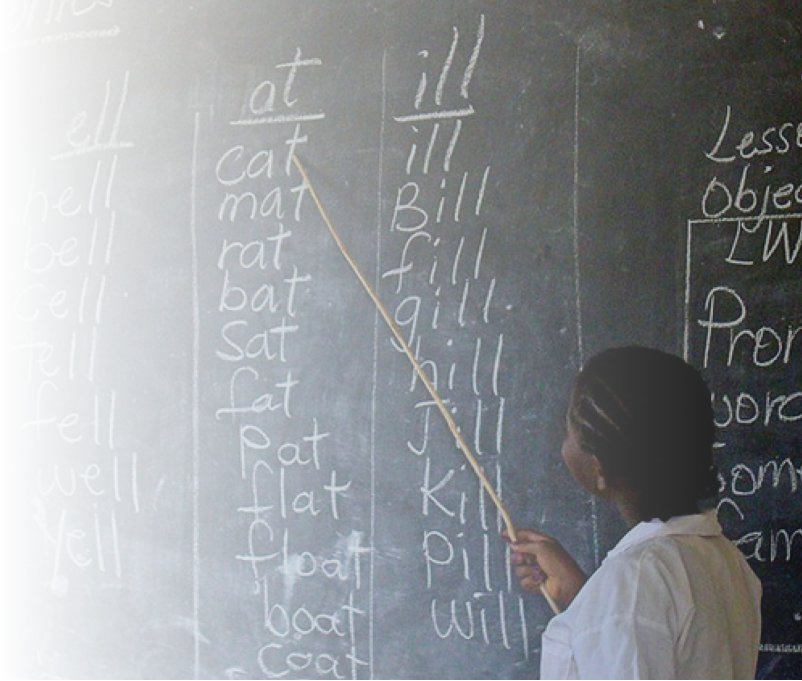 ell
bell
cell
tell
fell
well
Yell
at
cat
mat
rat
bat
sat
fat
Pat
flat
float
boat
coat
ill
ill
Bill
fill
gill
hill
Jill
Kill
Pill
will
Less
Objec
LW